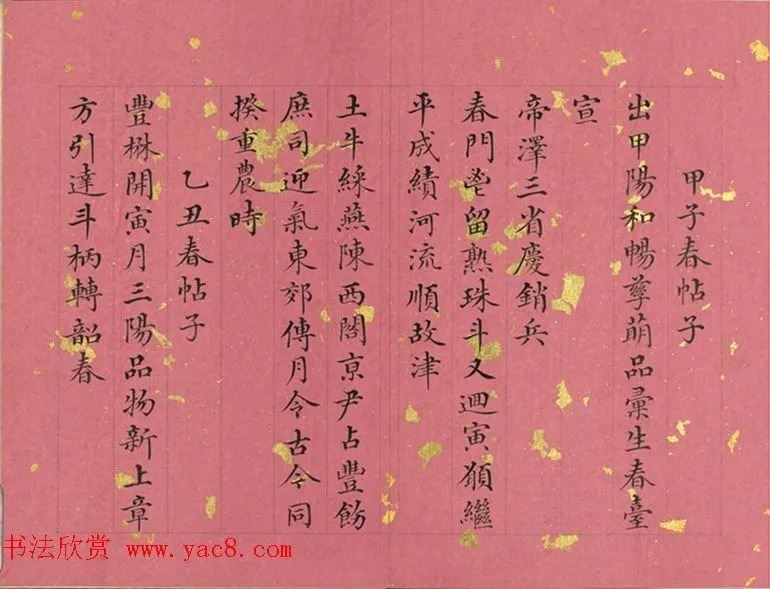 甲子春帖子
出甲陽和暢孳萌品彙生春臺
宣
帝澤三省慶銷兵
春門鬯留熟珠斗又迴寅願繼
平成績河流順故津
土牛綵燕陳西閣亰尹占豐飭
庶司迎氣東郊傳月令古今同
揆重農時
乙丑春帖子
豐楙開寅月三陽品物新上章
方引達斗柄轉韶春
书法欣赏 www.yac8.com